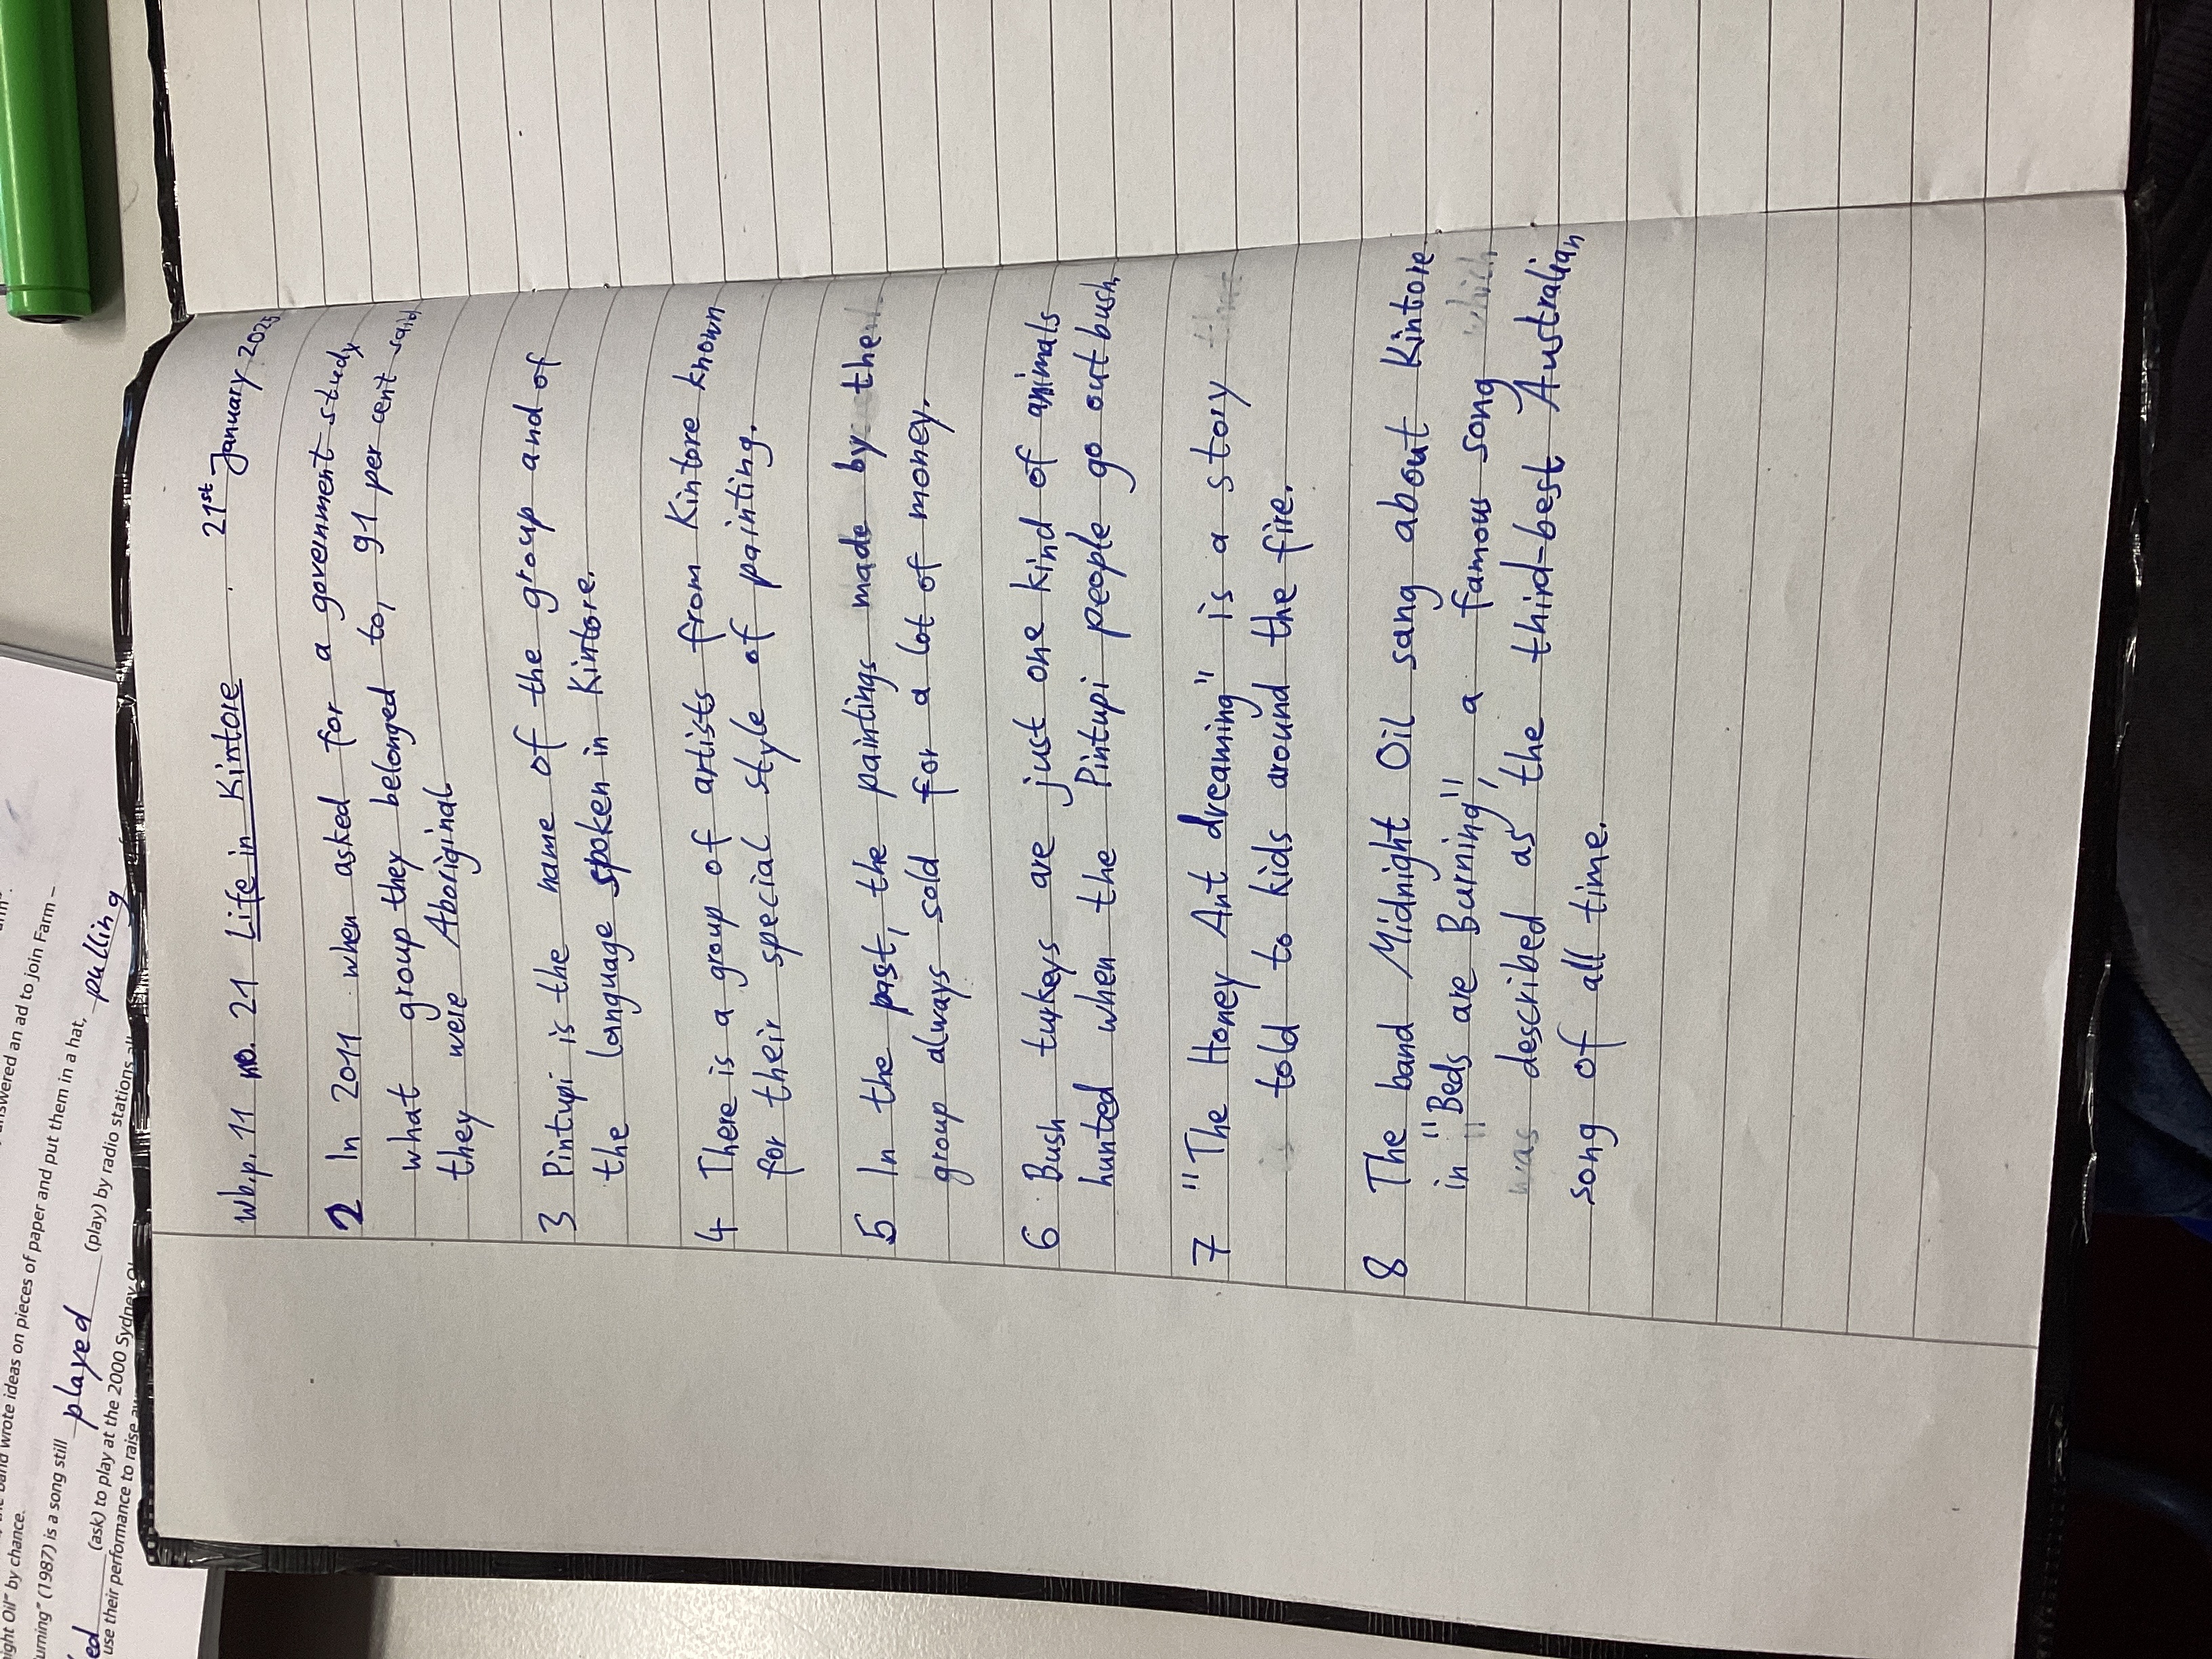 Wb.p. 11 no. 21 Life in Kintore 21st January 2025
2 In 2011 when asked for a government study
what group they belonged to, 91 per cent said
they were Aboriginal
3 Pintupi is the name of the group and of
the language spoken in Kintore.
4 There is a group of artists from Kintore known
for their special style of painting.
5 In the past, the paintings made by the
group always sold for a lot of money.
6 Bush turkeys are just one kind of animals
hunted when the Pintupi people go out bush.
7 "The Honey Ant dreaming" is a story that
is told to kids around the fire.
8 The band Midnight Oil sang about Kintore
in "Beds are Burning", a famous song which
was described as the third-best Australian
song of all time.
answered an ad to join Farm –
the band wrote ideas on pieces of paper and put them in a hat, pulling
ight Oil" by chance.
urning" (1987) is a song still played (play) by radio stations
ed (ask) to play at the 2000 Sydney
use their performance to raise